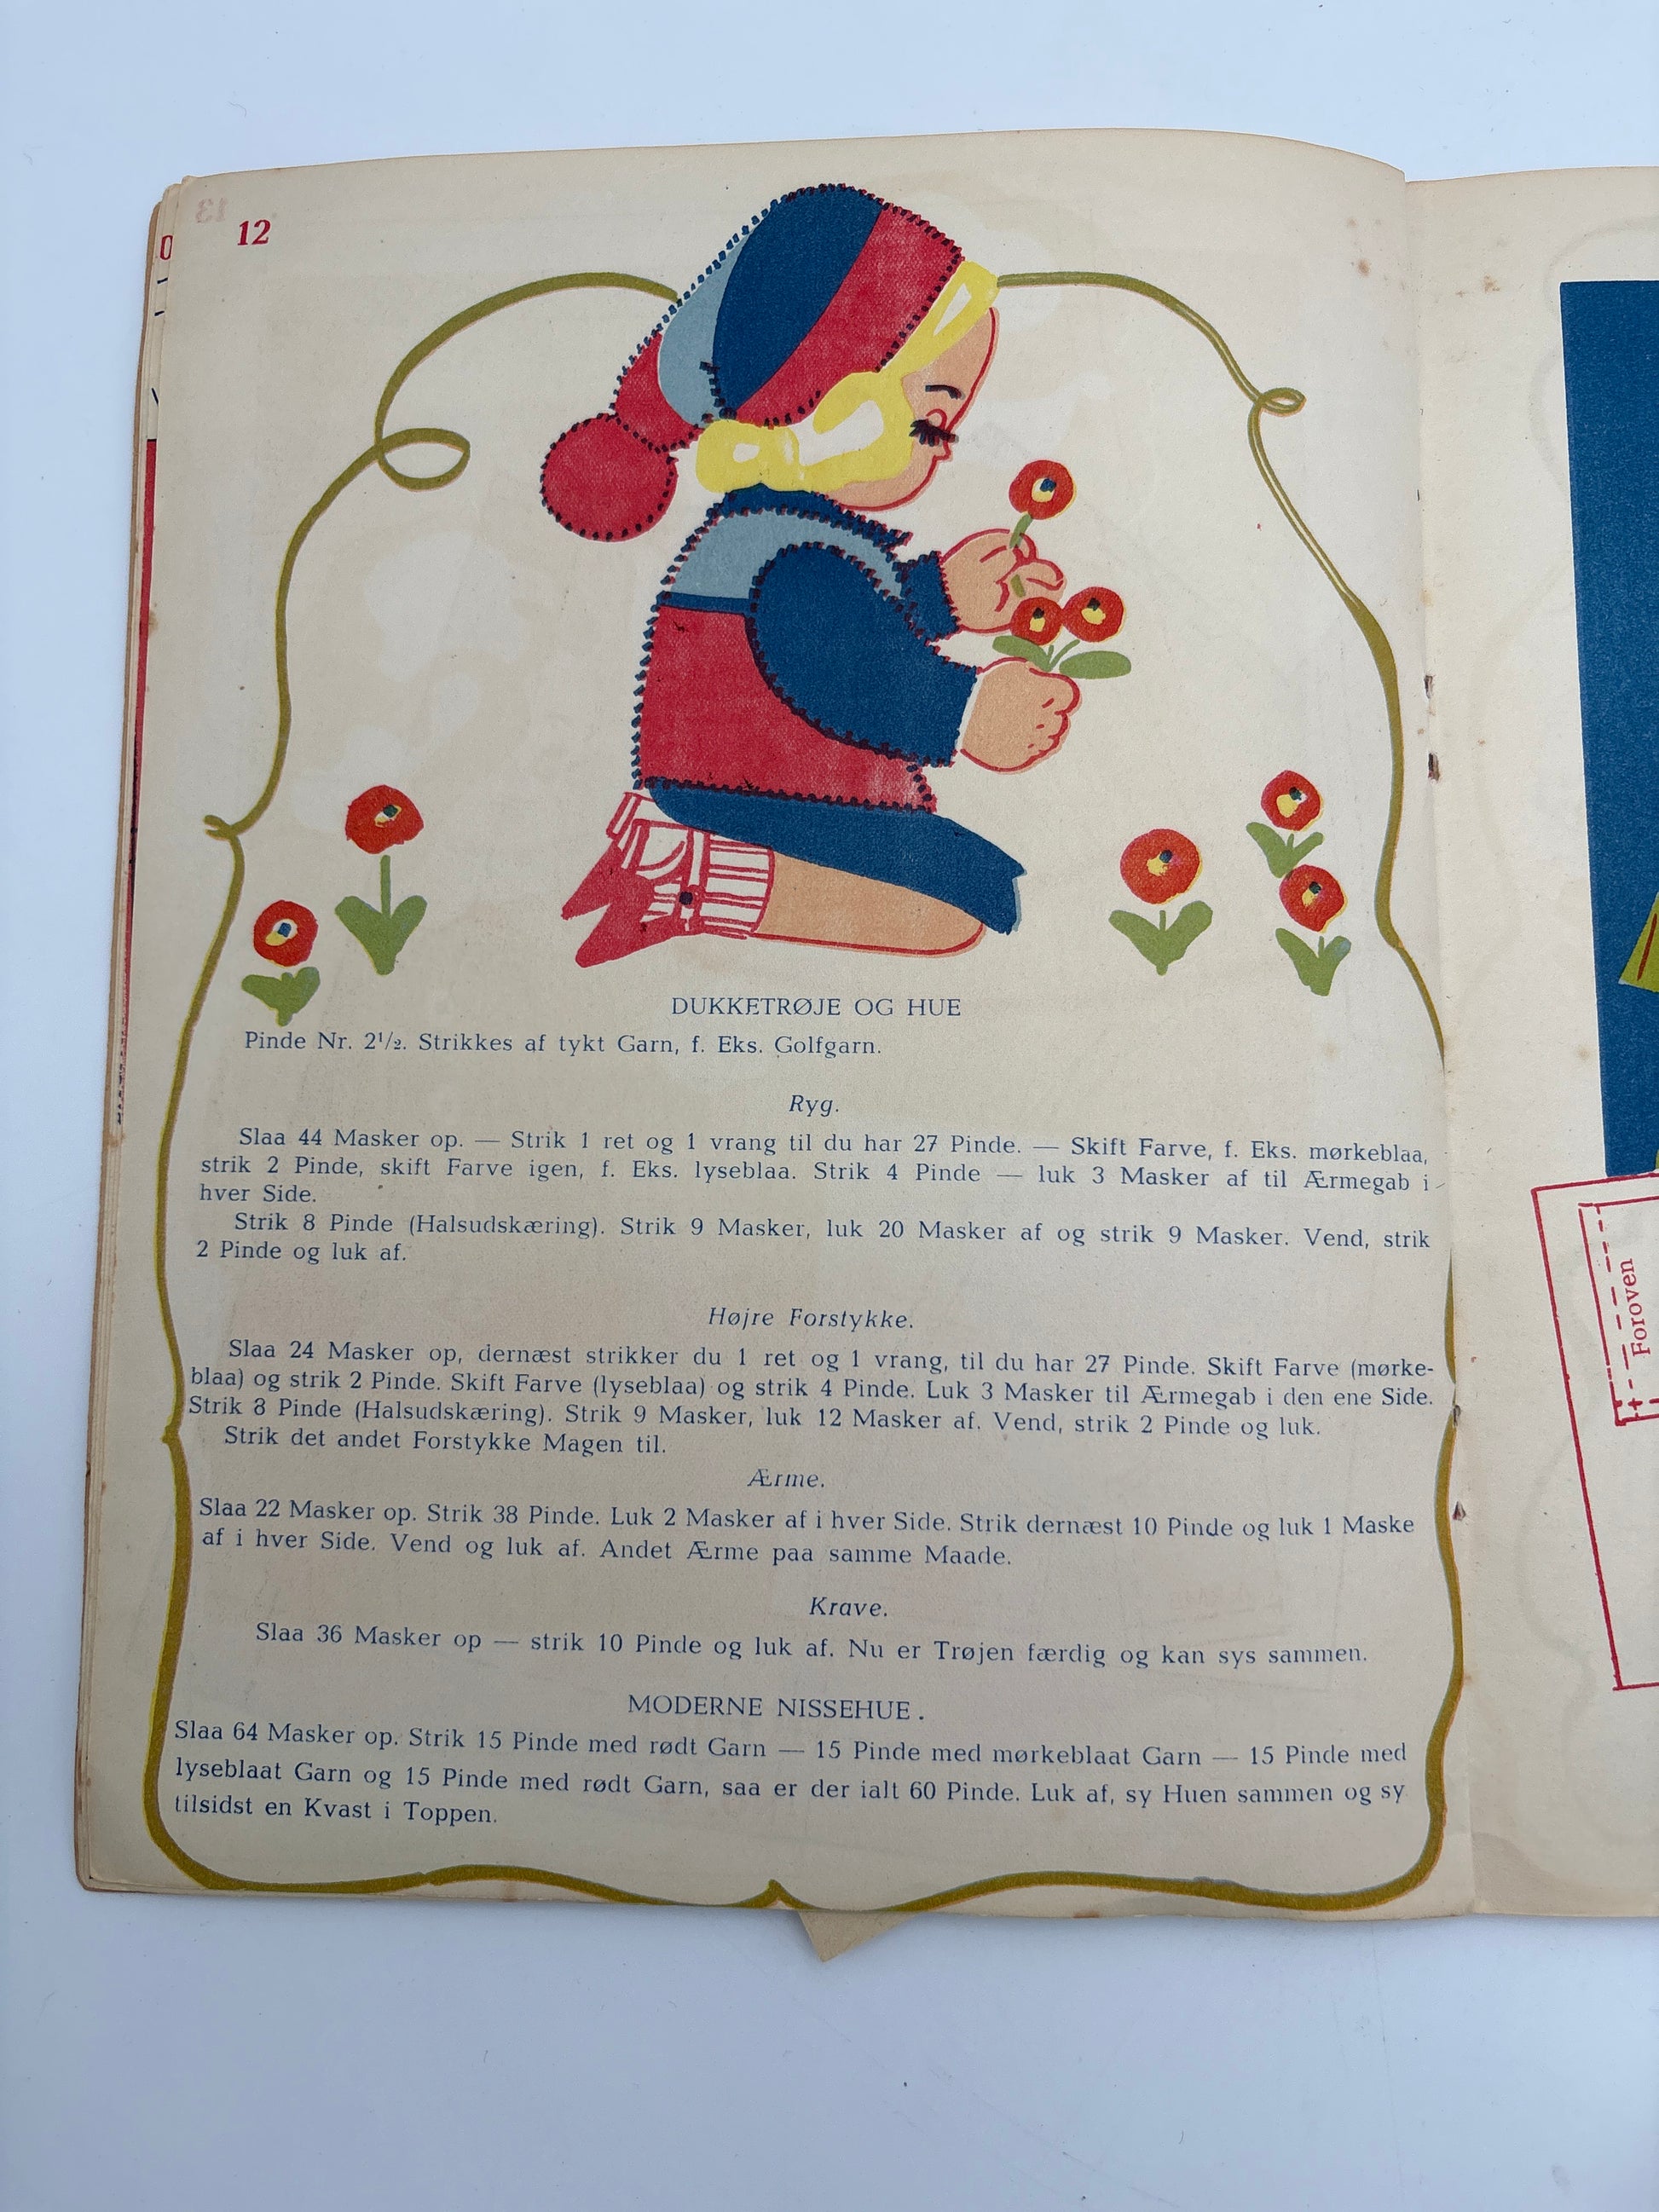 12
DUKKETRØJE OG HUE
Pinde Nr. 2½. Strikkes af tykt Garn, f. Eks. Golfgarn.
Ryg.
Slaa 44 Masker op. — Strik 1 ret og 1 vrang til du har 27 Pinde. — Skift Farve, f. Eks. mørkeblaa,
strik 2 Pinde, skift Farve igen, f. Eks. lyseblaa. Strik 4 Pinde — luk 3 Masker af til Ærmegab i
hver Side.
Strik 8 Pinde (Halsudskæring). Strik 9 Masker, luk 20 Masker af og strik 9 Masker. Vend, strik
2 Pinde og luk af.
Højre Forstykke.
Slaa 24 Masker op, dernæst strikker du 1 ret og 1 vrang, til du har 27 Pinde. Skift Farve (mørke-
blaa) og strik 2 Pinde. Skift Farve (lyseblaa) og strik 4 Pinde. Luk 3 Masker til Ærmegab i den ene Side.
Strik 8 Pinde (Halsudskæring). Strik 9 Masker, luk 12 Masker af. Vend, strik 2 Pinde og luk.
Strik det andet Forstykke Magen til.
Ærme.
Slaa 22 Masker op. Strik 38 Pinde. Luk 2 Masker af i hver Side. Strik dernæst 10 Pinde og luk 1 Maske
af i hver Side. Vend og luk af. Andet Ærme paa samme Maade.
Krave.
Slaa 36 Masker op — strik 10 Pinde og luk af. Nu er Trøjen færdig og kan sys sammen.
MODERNE NISSEHUE.
Slaa 64 Masker op. Strik 15 Pinde med rødt Garn — 15 Pinde med mørkeblaat Garn — 15 Pinde med
lyseblaat Garn og 15 Pinde med rødt Garn, saa er der ialt 60 Pinde. Luk af, sy Huen sammen og sy
tilsidst en Kvast i Toppen.
Foroven